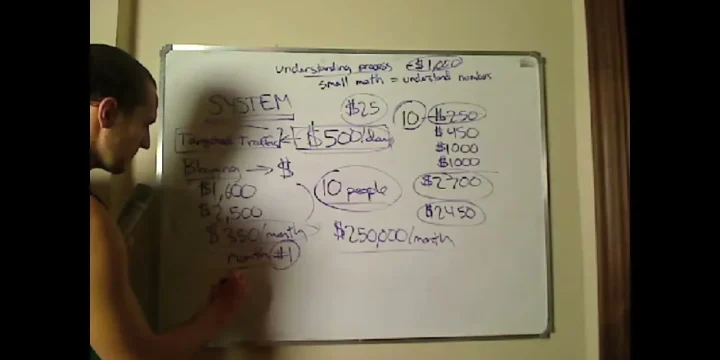 understanding process $1,000
small math = understand numbers
SYSTEM $25
Targeted Traffic $500/day
Blogging → $
$1,600
$2,500
$350/month
month #1
10 people
$250,000/month
10 $250
$450
$1000
$1000
$2700
$2450